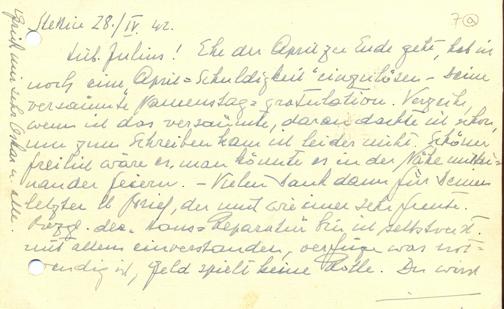 Stettin 28./IV. 42.
7a
Lieb. Julius! Ehe der April zu Ende geht, hab ich
noch eine "April-Schuldigkeit" einzulösen – Deine
versäumte Namenstag-gratulation. Verzeih,
wenn ich das versäumte, daran dachte ich schon,
nur zum Schreiben kam ich leider nicht. Schöner
freilich wäre es, man könnte es in der Nähe mitei-
nander feiern. – Vielen Dank dann für Deinen
letzten lb Brief, der mich wie immer sehr freute.
Bezgl. der Haus-Reparatur bin ich selbstverst.
mit allem einverstanden, verfüge was not-
wendig ist, Geld spielt keine Rolle. Du wirst